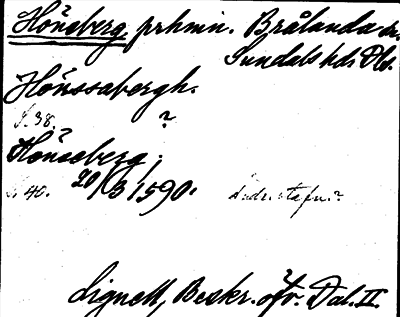 Hönsberg prhmn. Brålanda sn.
Sundals hd. Dls.
Hönssabergh.
S. 38. ?
Hönseberg;
S. 40. 20/3 1590.
Lignell, Beskr. öfv. Dal. II.